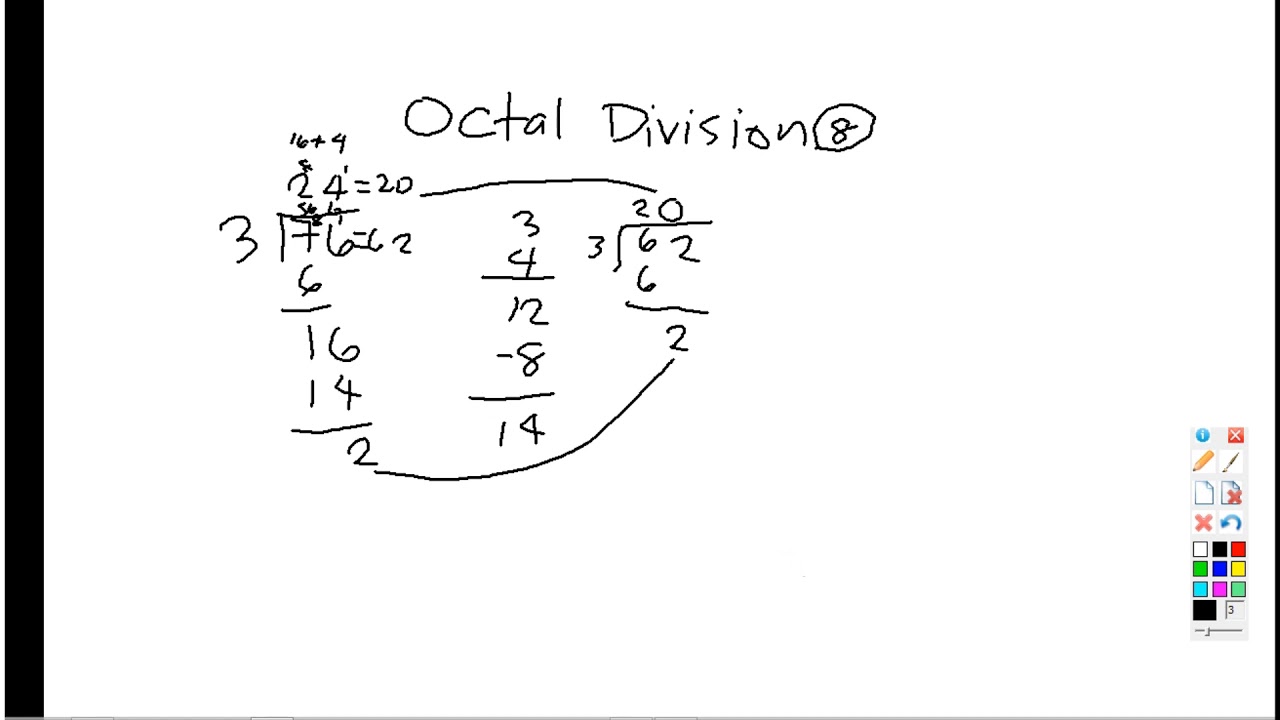 Octal Division 8
16+4
8 1
24=20
56 6
3 76=62
8 1
6
16
14
2
3
4
12
-8
14
20
3 62
6
2
3